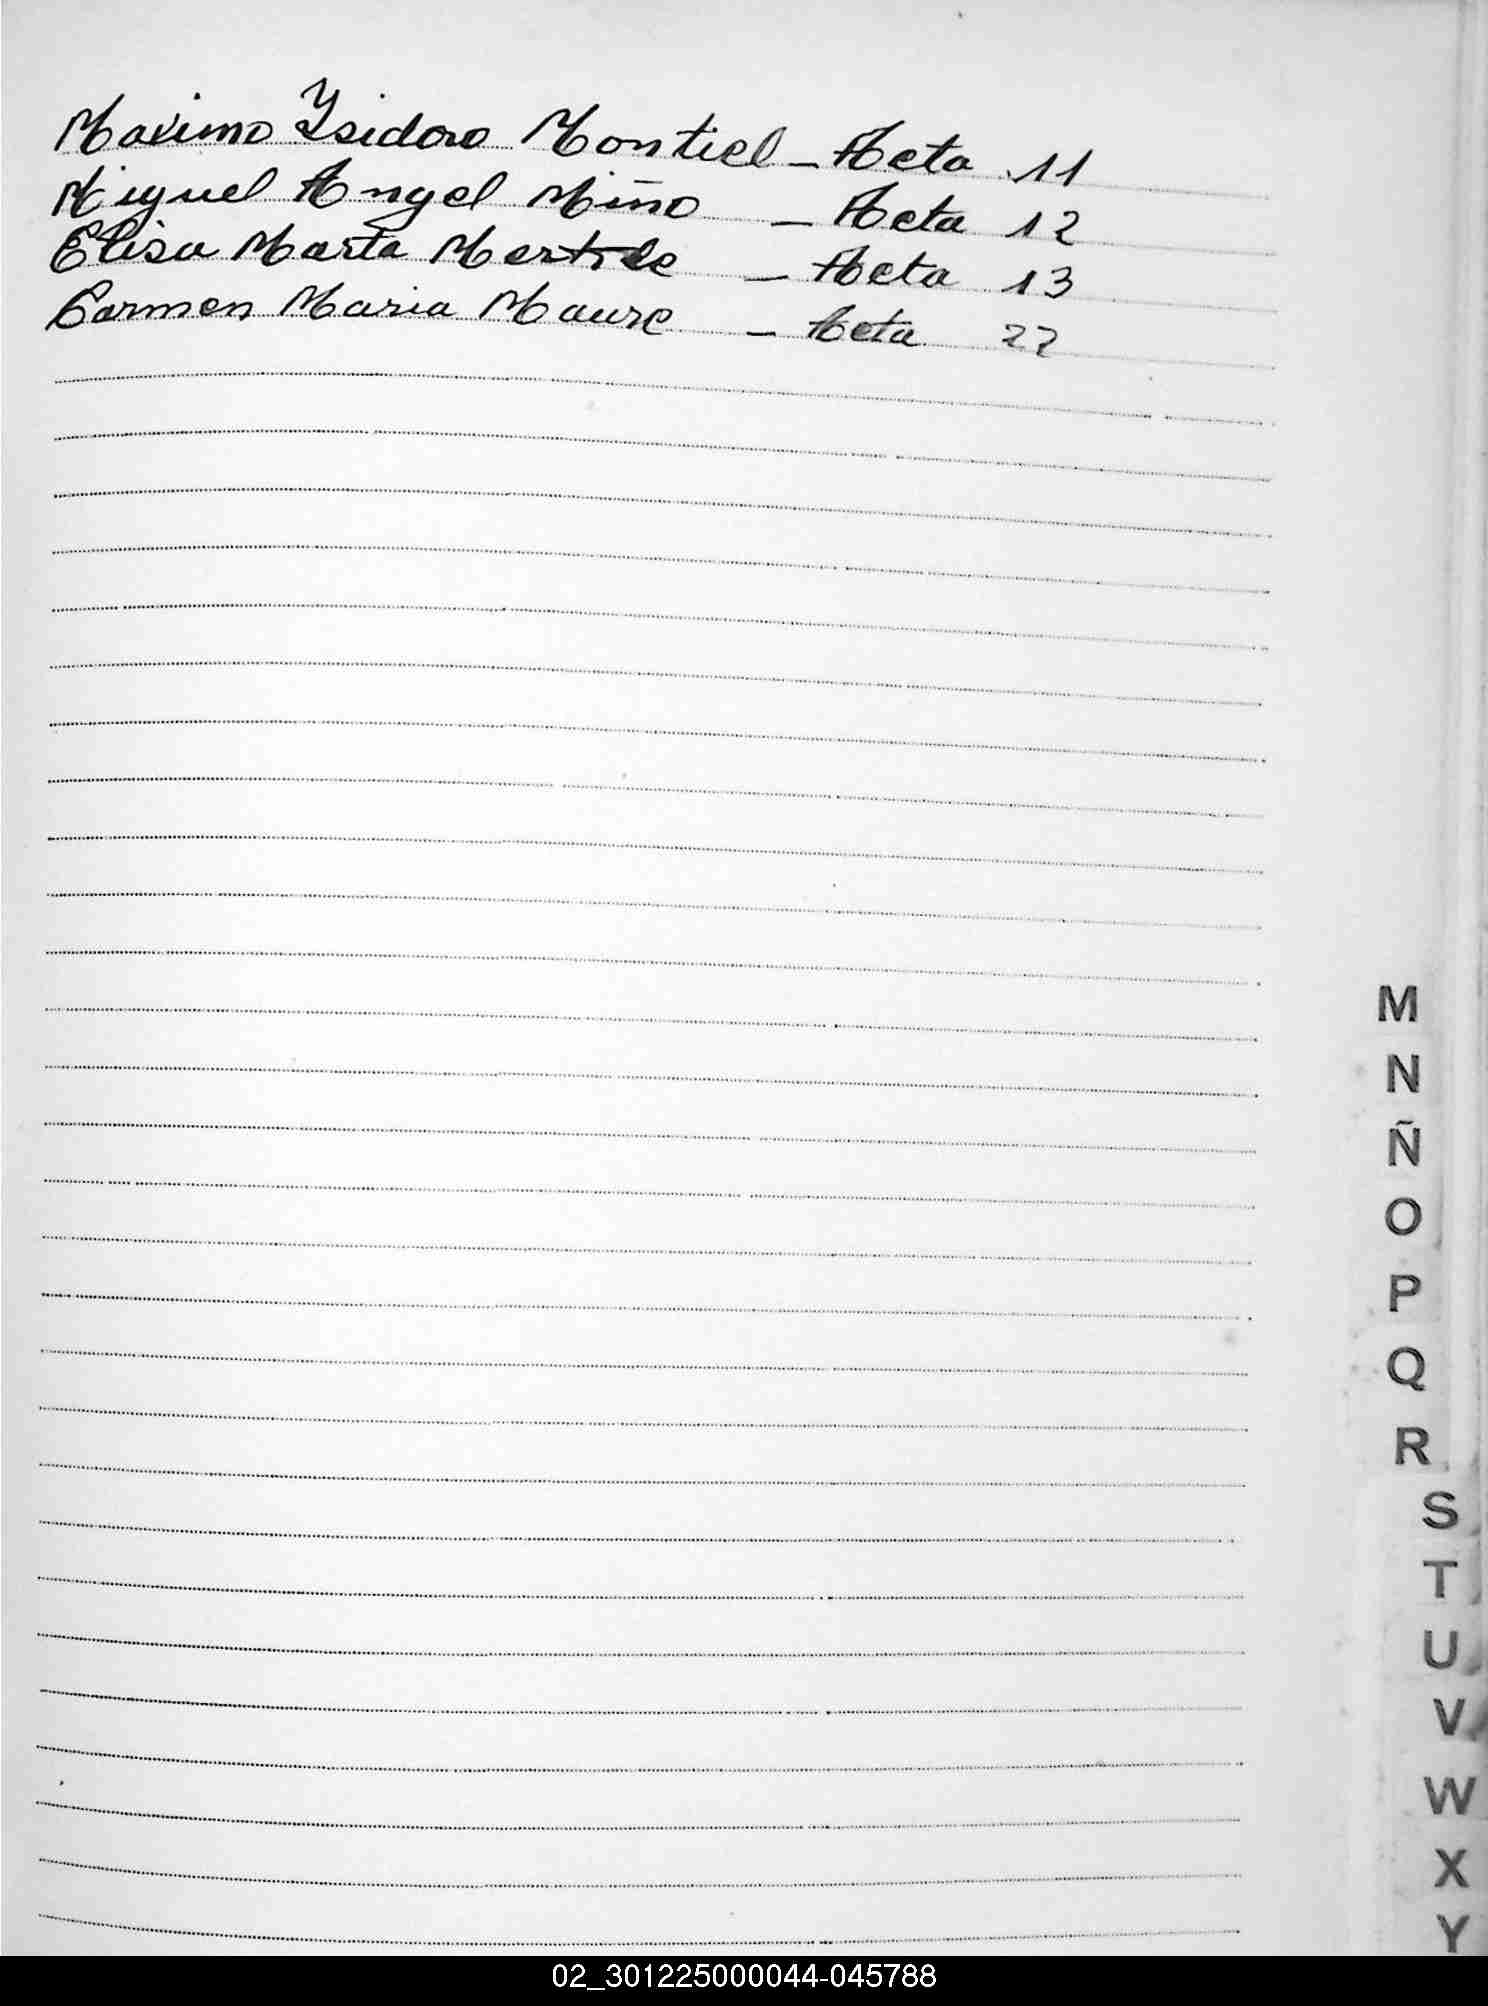 Maximo Ysidoro Montiel - Acta 11
Miguel Angel Miño - Acta 12
Elisa Marta - Acta 13
Carmen Maria Maure - Acta 22
M
N
Ñ
O
P
Q
R
S
T
U
V
W
X
Y
02_301225000044-045788